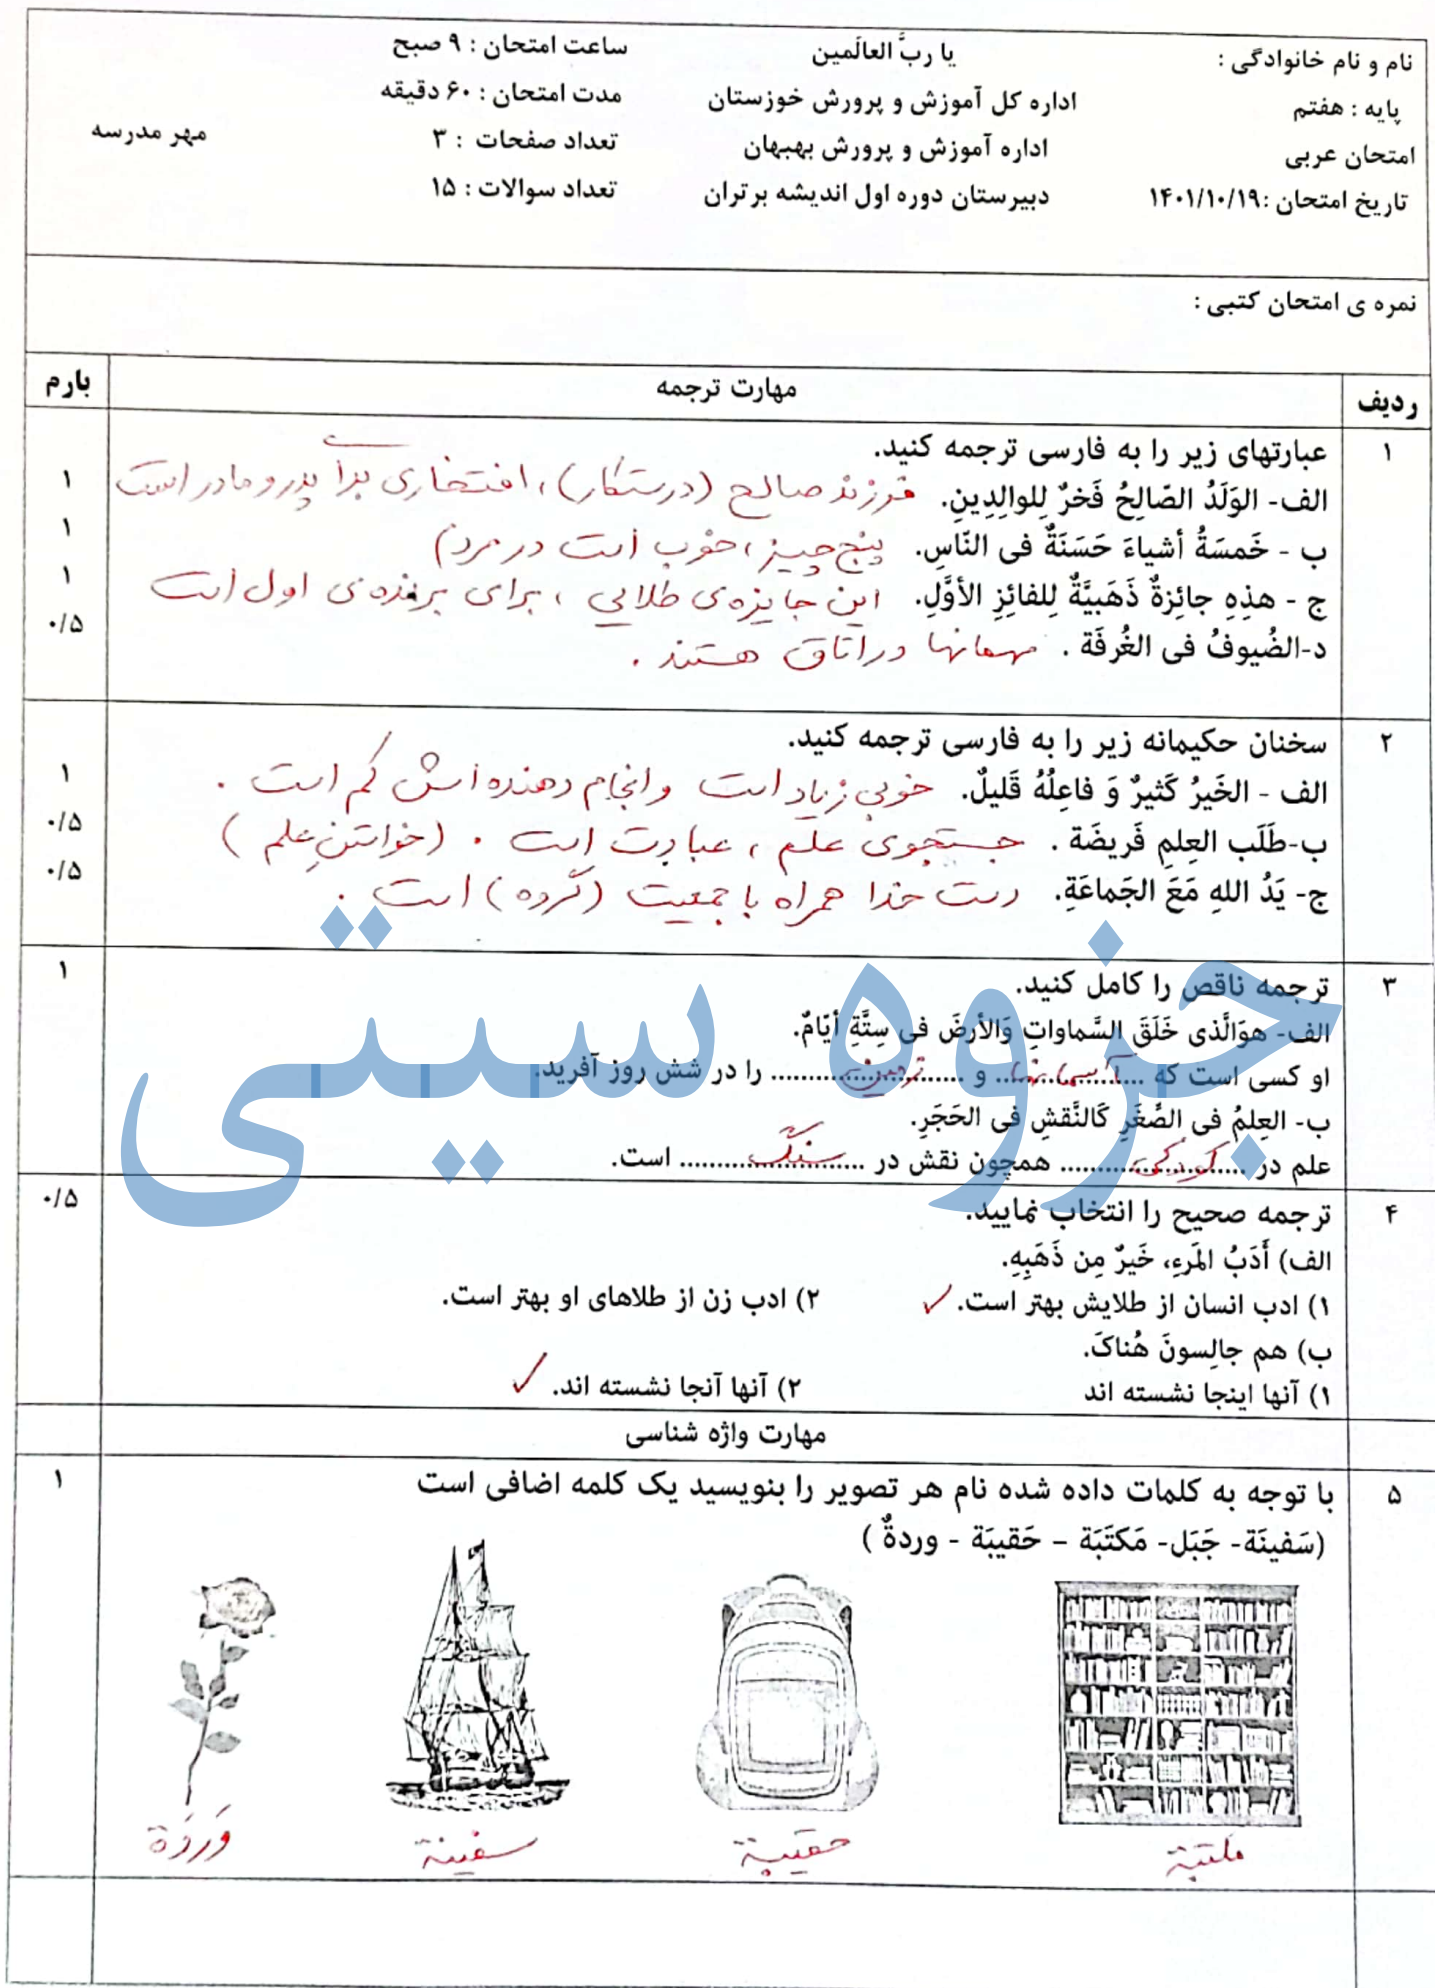 نام و نام خانوادگی :
پایه : هفتم
امتحان عربی
تاریخ امتحان :۱۴۰۱/۱۰/۱۹
یا ربَّ العالَمین
اداره کل آموزش و پرورش خوزستان
اداره آموزش و پرورش بهبهان
دبیرستان دوره اول اندیشه برتران
ساعت امتحان : ۹ صبح
مدت امتحان : ۶۰ دقیقه
تعداد صفحات : ۳
تعداد سوالات : ۱۵
مهر مدرسه
نمره ی امتحان کتبی :
ردیف مهارت ترجمه بارم
۱ عبارتهای زیر را به فارسی ترجمه کنید.
الف- الوَلَدُ الصّالِحُ فَخرٌ لِلوالِدِینِ. فرزند صالح (درستکار)، افتخاری برای پدر و مادر است ۱
ب - خَمسَةُ أشیاءَ حَسَنَةٌ فی النّاسِ. پنج چیز، خوب است در مردم ۱
ج - هذِهِ جائِزةٌ ذَهَبیَّةٌ لِلفائِزِ الأوَّلِ. این جایزه‌ی طلایی، برای برنده‌ی اول است ۱
د-الضُیوفُ فی الغُرفَة . مهمانها در اتاق هستند . ۰/۵
۲ سخنان حکیمانه زیر را به فارسی ترجمه کنید.
الف - الخَیرُ کَثیرٌ وَ فاعِلُهُ قَلیلٌ. خوبی زیاد است و انجام دهنده اش کم است . ۱
ب-طَلَب العِلمِ فَریضَة . جستجوی علم ، عبادت است . (خواستنِ علم ) ۰/۵
ج- یَدُ اللهِ مَعَ الجَماعَةِ. دست خدا همراه با جمعیت (گروه) است . ۰/۵
۳ ترجمه ناقص را کامل کنید. ۱
الف- هوَالَّذی خَلَقَ السَّماواتِ وَالأرضَ فی سِتَّةِ أیّامٌ.
او کسی است که ....آسمانها.... و ....زمین.... را در شش روز آفرید.
ب- العِلمُ فی الصِّغَرِ کَالنَّقشِ فی الحَجَرِ.
علم در ....کودکی.... همچون نقش در ....سنگ.... است.
۴ ترجمه صحیح را انتخاب نمایید. ۰/۵
الف) أَدَبُ المَرءِ، خَیرٌ مِن ذَهَبِهِ.
۱) ادب انسان از طلایش بهتر است. ✓ ۲) ادب زن از طلاهای او بهتر است.
ب) هم جالِسونَ هُناکَ.
۱) آنها اینجا نشسته اند ۲) آنها آنجا نشسته اند. ✓
مهارت واژه شناسی
۵ با توجه به کلمات داده شده نام هر تصویر را بنویسید یک کلمه اضافی است ۱
(سَفینَة- جَبَل- مَکتَبَة – حَقیبَة - وردةٌ )
مکتبة حقیبة سفینة وَردَة
جزوه سیتی